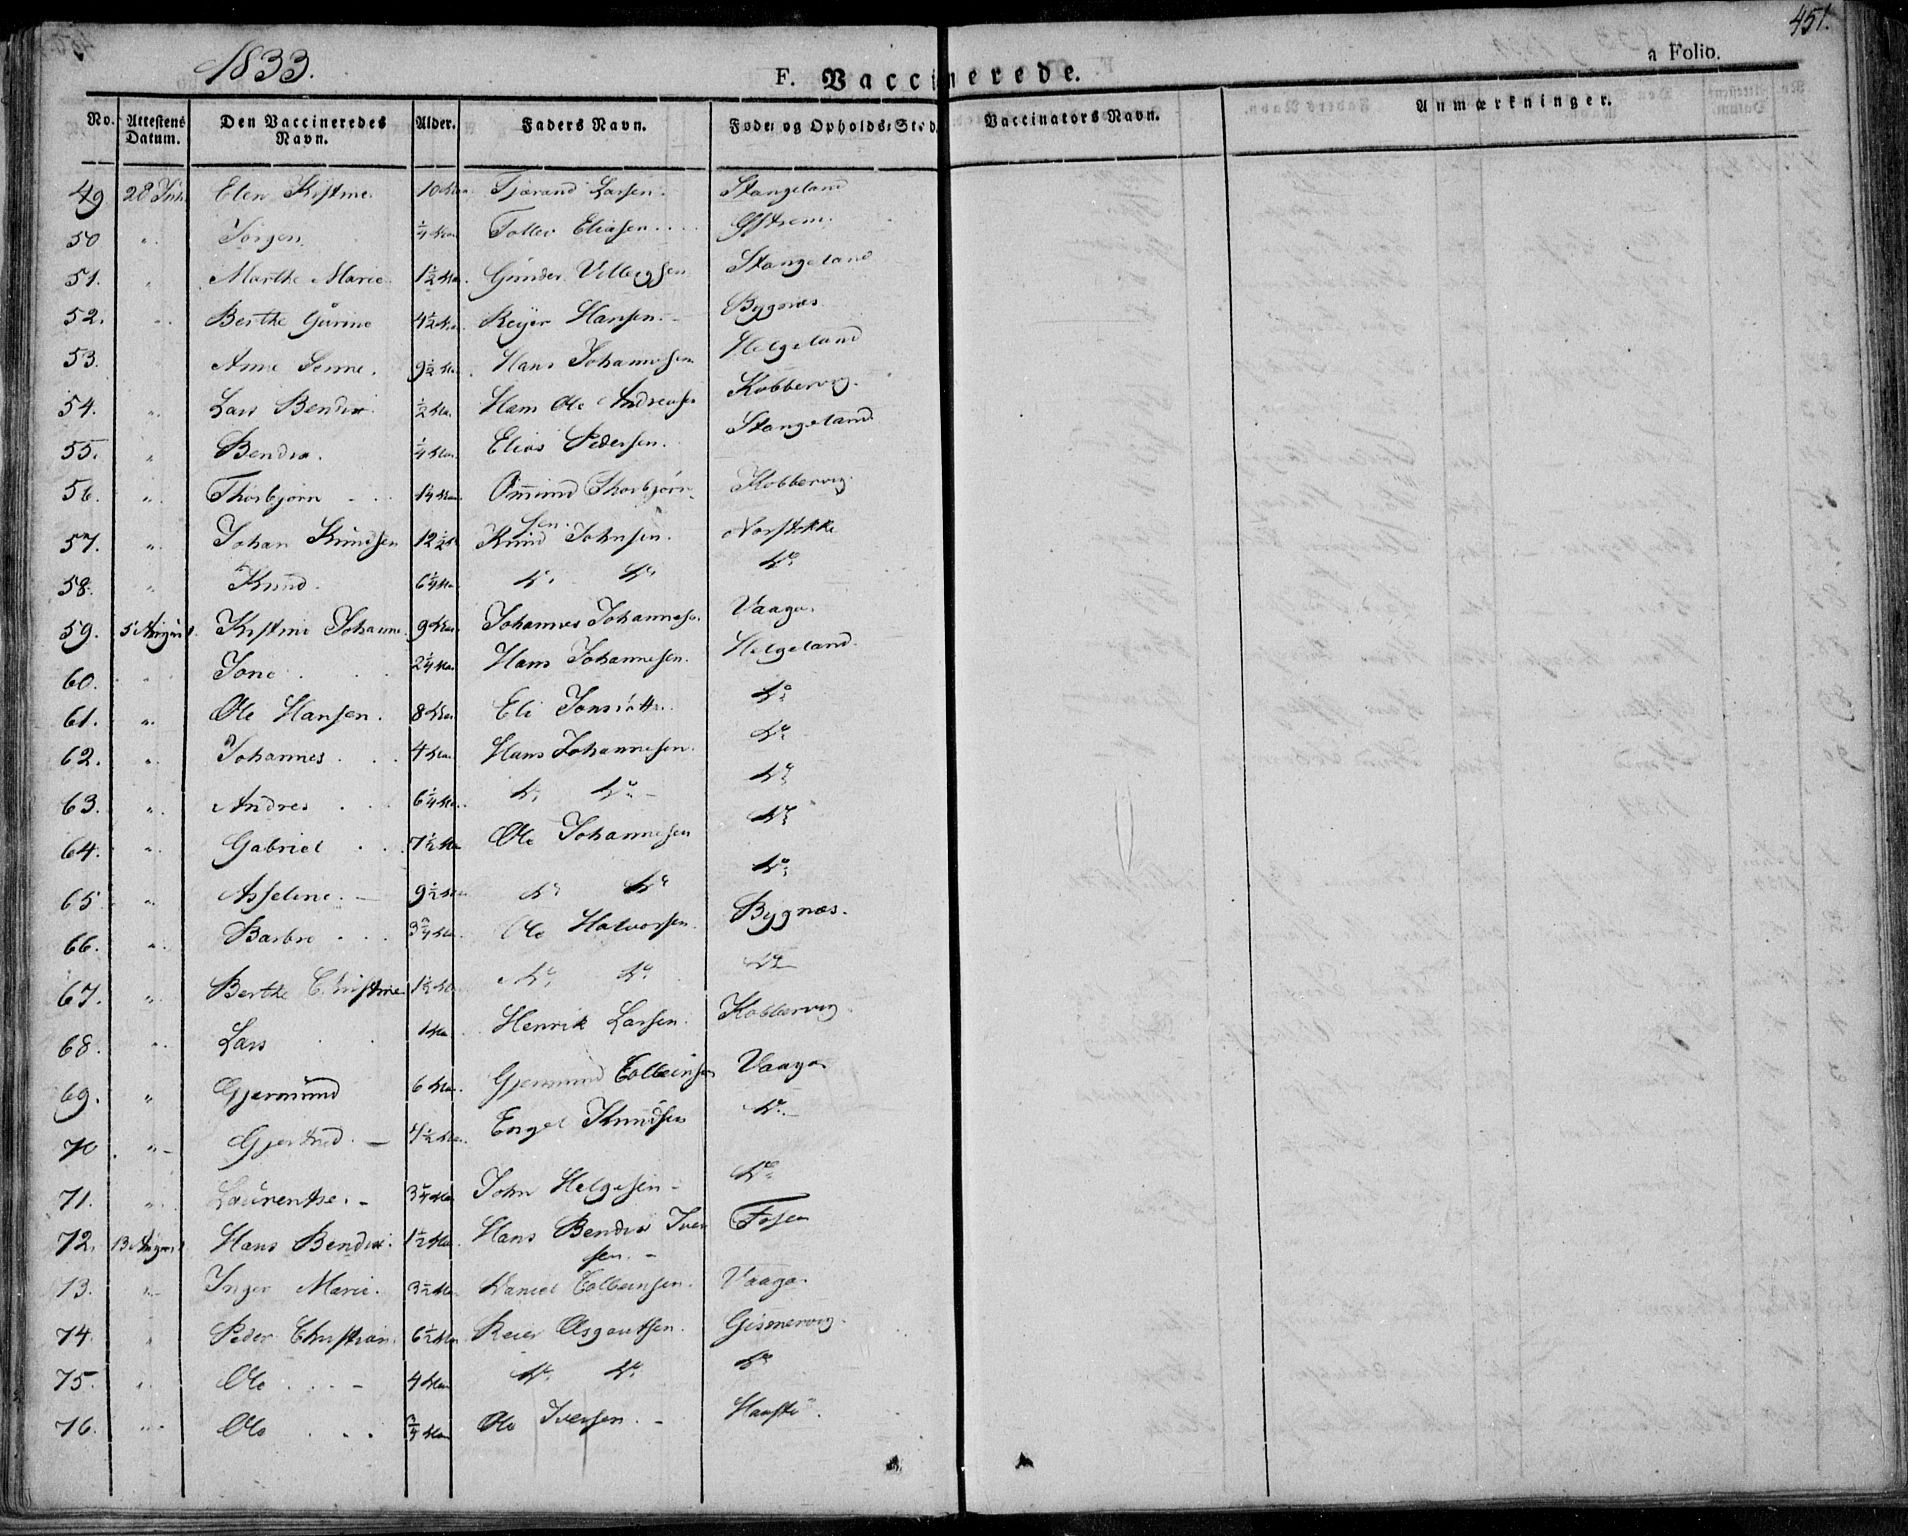 451.
1833.
a Folio.
F. Vaccinerede.
No. Attestens Datum. Den Vaccineredes Navn. Alder. Faders Navn. Føde- og Opholds-Sted. Vaccinators Navn. Anmærkninger.
49 28 Elen Kistine. 10 Tjærand Larsen. Stangeland
50 " Jørgen 1/4 Tollev Eliasen....
51. " Marthe Marie 1 1/2 Gunder Stangeland
52. " Berthe Gurine 4 1/2 Reijer Hansen. - Bygnæs
53. Anne 9 1/2 Hans Johannesen Helgeland
54. " Lars Bendix 1/2 Hans Ole Andreasen Kobbervig.
55. " Bendix. 1/4 Elias Pedersen. Stangeland
56. " Thorbjørn - . Ommund Thorbjørn- Kobbervig.
sen.
57. " Johan Knudsen 12 1/2 Knud Johnsen. Norstokke
58. " Knud. 6 1/4 do do do
59. 5 August. Kistine Johanne. 9 Johannes Johannesen. Vaage.
60. " Jone . . . 2 1/4 Hans Johannesen. Helgeland.
61. " Ole Hansen. 8 Eli do
62. " Johannes . . . 4 Hans Johannesen. do
63. " Andres . . . 6 1/4 do do - do
64. " Gabriel . . . 7 1/2 Ole Johannesen do
65 " Asseline. - 9 1/2 do do do
66. " Barbro . . . 3 3/4 Ole Halvorsen. Bygnæs.
67. " Berthe Christine 1 1/2 do do do
68. " Lars 1 Henrik Larsen. Kobbervig
69. " Gjermund 6 Gjermund Colbeinsen Vaage
70 " Gjertrud. - 4 1/2 Engel Knudsen do
71. " Laurentse. - 3 1/4 John Helgesen - do
72. 13 August Hans Bendix. 1 1/2 Hans Bendix Iver Fosen
sen. -
73. " Inger Marie. 3 1/2 Daniel Colbeinsen. Vaage.
74. " Peder Christian. 6 1/2 Reier Asgautsen. Gismervig.
75. " Ole . . . - 4 do do do
76. " Ole . . . 3/4 Ole Iversen. -